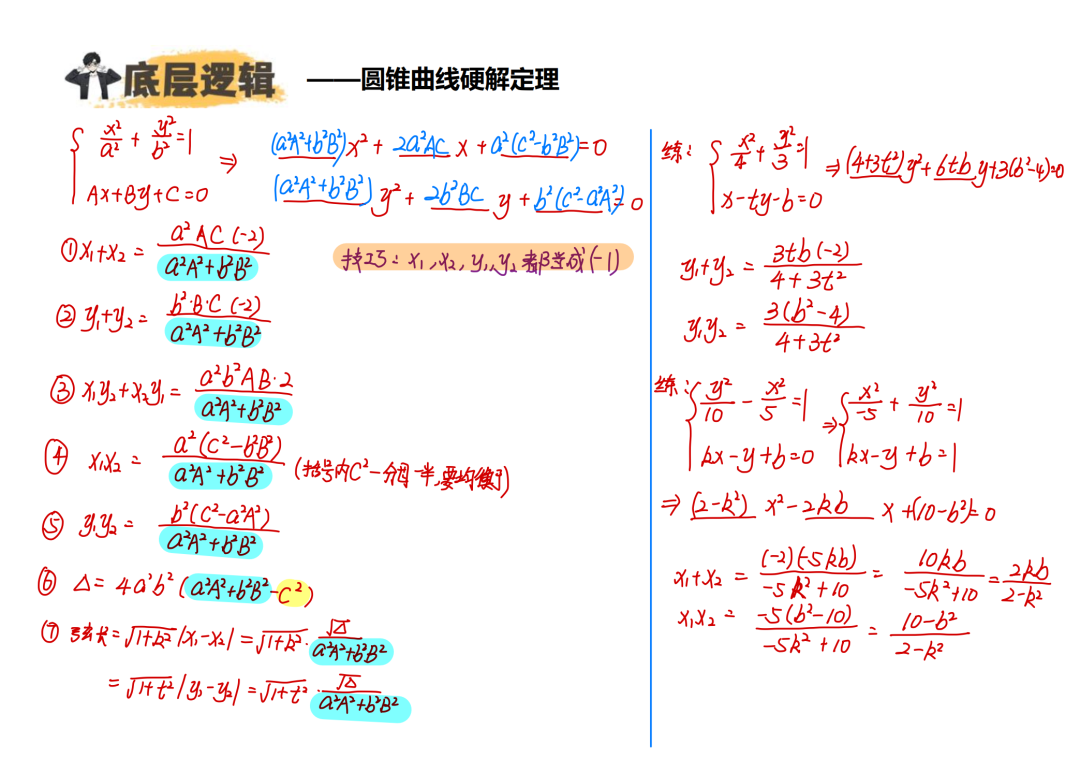 底层逻辑 ——圆锥曲线硬解定理
{ x²/a² + y²/b² = 1
Ax+By+C=0
⇒ (a²A²+b²B²)x² + 2a²AC x + a²(C²-b²B²)=0
(a²A²+b²B²) y² + 2b²BC y + b²(C²-a²A²)=0
技巧：x₁,x₂,y₁,y₂都当成(-1)
① x₁+x₂ = a²AC(-2) / a²A²+b²B²
② y₁+y₂ = b²·B·C(-2) / a²A²+b²B²
③ x₁y₂+x₂y₁ = a²b²AB·2 / a²A²+b²B²
④ x₁x₂ = a²(C²-b²B²) / a²A²+b²B² (括号内C²-分母一半,要均衡)
⑤ y₁y₂ = b²(C²-a²A²) / a²A²+b²B²
⑥ Δ = 4a²b²(a²A²+b²B²-C²)
⑦ 弦长=√1+k² |x₁-x₂| = √1+k² · √Δ / a²A²+b²B²
= √1+t² |y₁-y₂| = √1+t² · √Δ / a²A²+b²B²
练: { x²/4 + y²/3 = 1
x-ty-b=0
⇒ (4+3t²)y²+6tby+3(b²-4)=0
y₁+y₂ = 3tb(-2) / 4+3t²
y₁y₂ = 3(b²-4) / 4+3t²
练: { y²/10 - x²/5 = 1
kx-y+b=0
⇒ { x²/-5 + y²/10 = 1
kx-y+b=1
⇒ (2-k²) x²-2kb x+(10-b²)=0
x₁+x₂ = (-2)(-5kb) / -5k²+10 = 10kb / -5k²+10 = 2kb / 2-k²
x₁x₂ = -5(b²-10) / -5k²+10 = 10-b² / 2-k²